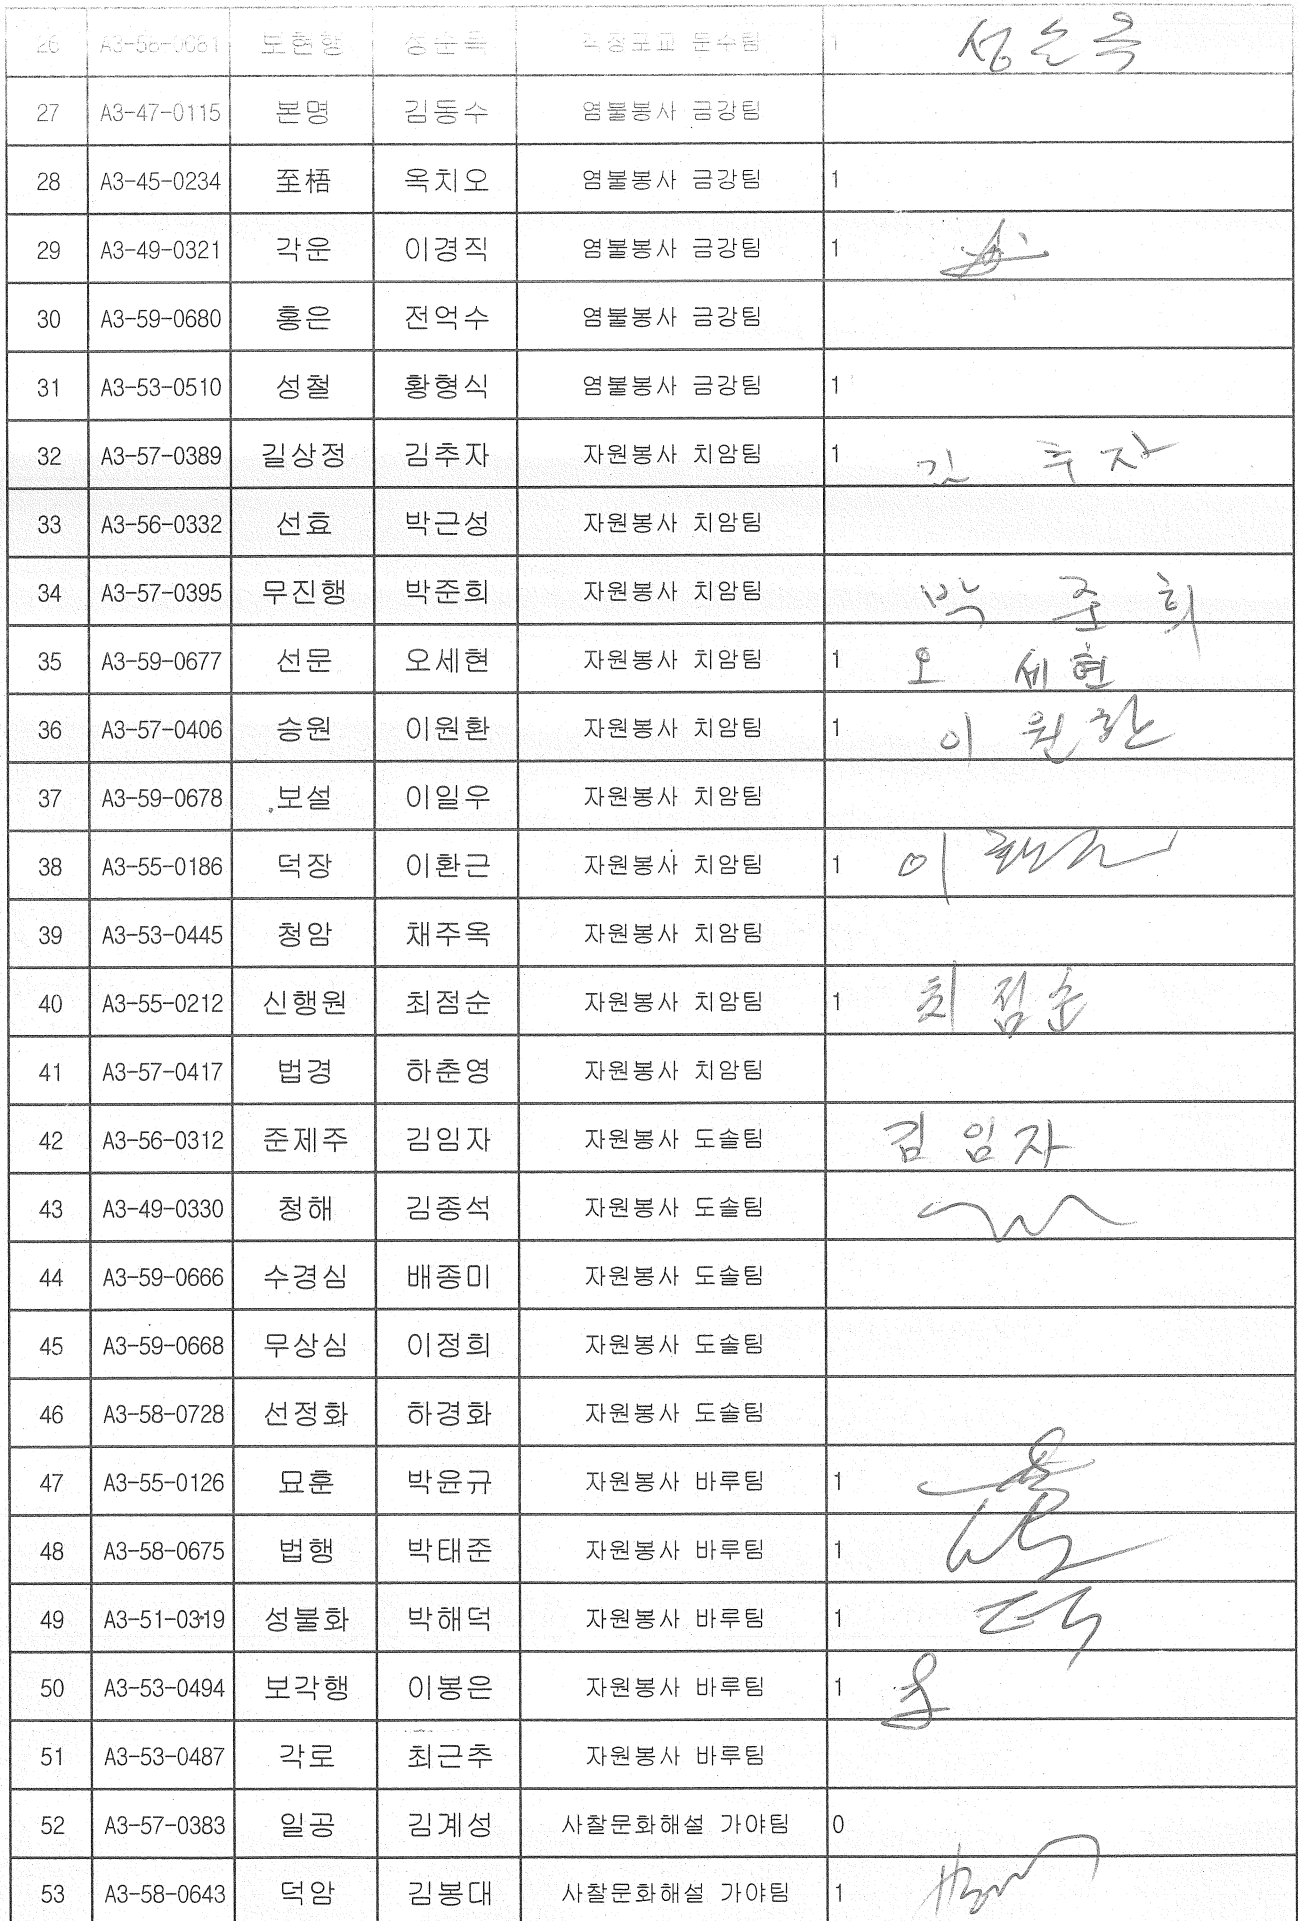 26 A3-58-0681 보현행 성순옥 직장포교 문수팀 1 성순옥
27 A3-47-0115 본명 김동수 염불봉사 금강팀
28 A3-45-0234 至梧 옥치오 염불봉사 금강팀 1
29 A3-49-0321 각운 이경직 염불봉사 금강팀 1
30 A3-59-0680 홍은 전억수 염불봉사 금강팀
31 A3-53-0510 성철 황형식 염불봉사 금강팀 1
32 A3-57-0389 길상정 김추자 자원봉사 치암팀 1 김추자
33 A3-56-0332 선효 박근성 자원봉사 치암팀
34 A3-57-0395 무진행 박준희 자원봉사 치암팀 박준희
35 A3-59-0677 선문 오세현 자원봉사 치암팀 1 오세현
36 A3-57-0406 승원 이원환 자원봉사 치암팀 1 이원환
37 A3-59-0678 보설 이일우 자원봉사 치암팀
38 A3-55-0186 덕장 이환근 자원봉사 치암팀 1 이환근
39 A3-53-0445 청암 채주옥 자원봉사 치암팀
40 A3-55-0212 신행원 최점순 자원봉사 치암팀 1 최점순
41 A3-57-0417 법경 하춘영 자원봉사 치암팀
42 A3-56-0312 준제주 김임자 자원봉사 도솔팀 김임자
43 A3-49-0330 청해 김종석 자원봉사 도솔팀
44 A3-59-0666 수경심 배종미 자원봉사 도솔팀
45 A3-59-0668 무상심 이정희 자원봉사 도솔팀
46 A3-58-0728 선정화 하경화 자원봉사 도솔팀
47 A3-55-0126 묘훈 박윤규 자원봉사 바루팀 1
48 A3-58-0675 법행 박태준 자원봉사 바루팀 1
49 A3-51-0319 성불화 박해덕 자원봉사 바루팀 1
50 A3-53-0494 보각행 이봉은 자원봉사 바루팀 1
51 A3-53-0487 각로 최근추 자원봉사 바루팀
52 A3-57-0383 일공 김계성 사찰문화해설 가야팀 0
53 A3-58-0643 덕암 김봉대 사찰문화해설 가야팀 1